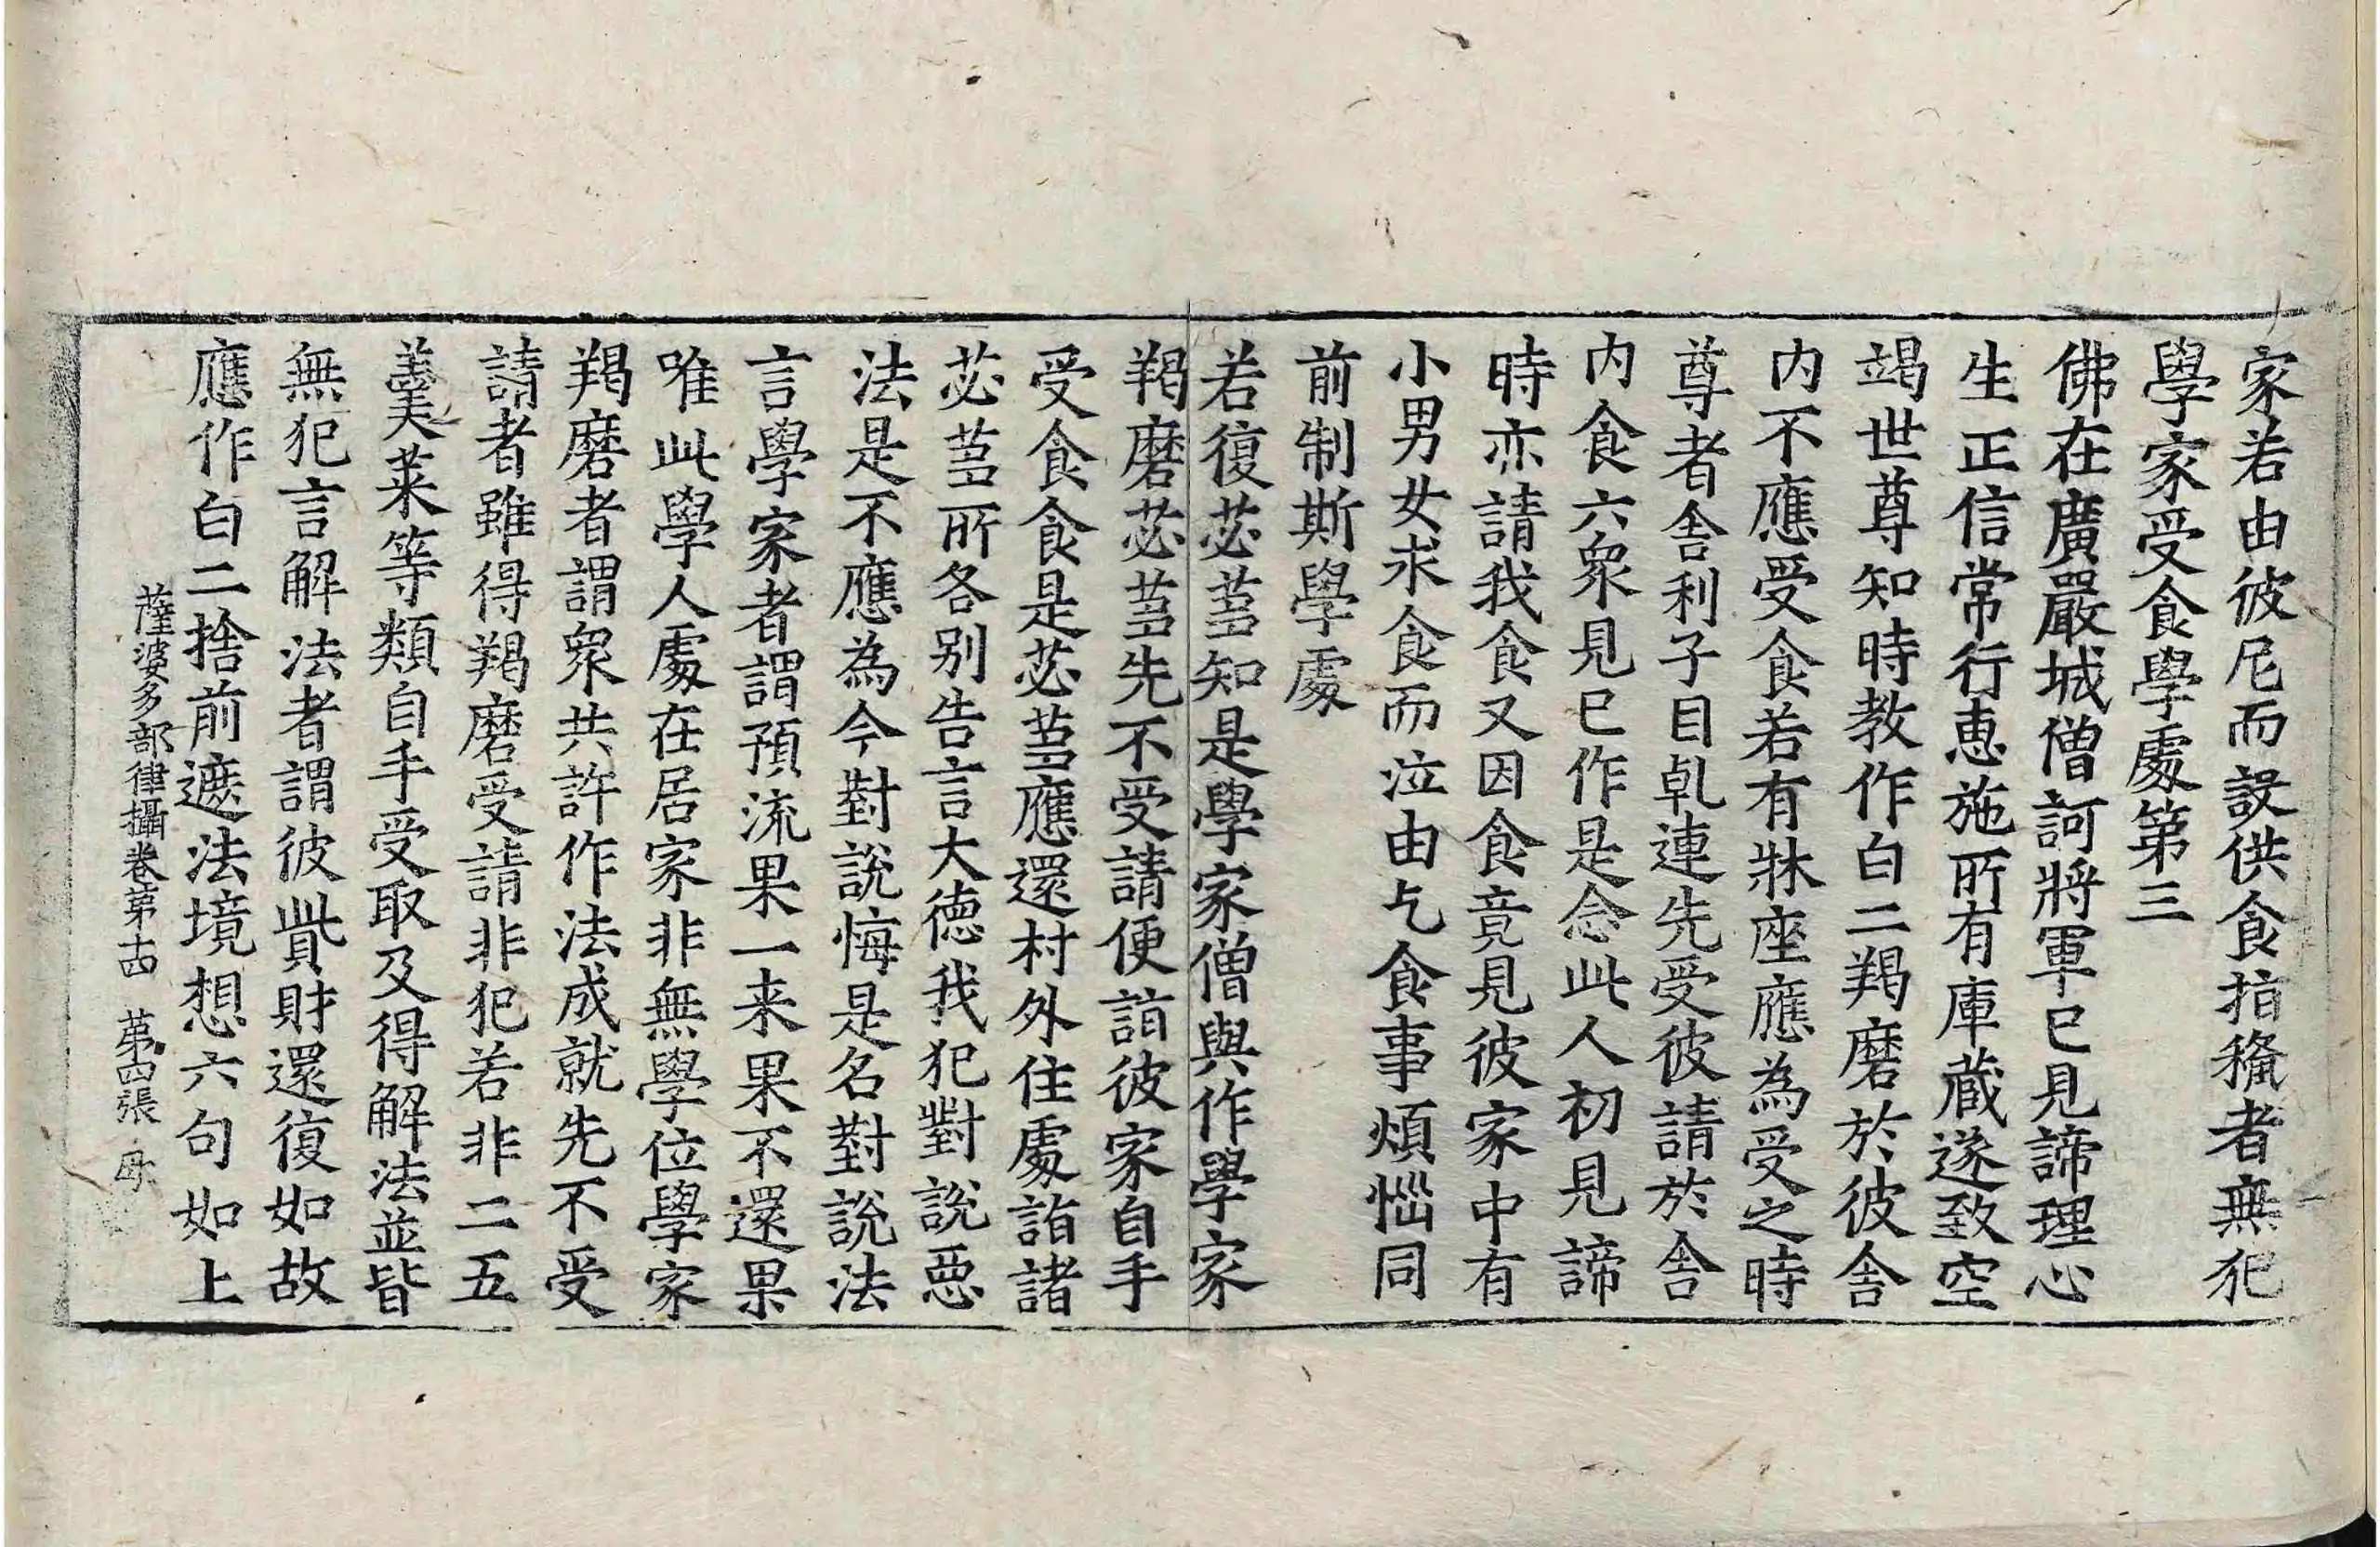 家若由彼尼而設供食指撝者無犯
學家受食學處第三
佛在廣嚴城僧訶將軍巳見諦理心
生正信常行恵施所有庫蔵遂致空
竭世尊知時教作白二羯磨於彼舎
内不應受食若有牀座應為受之時
尊者舎利子目乹連先受彼請於舎
内食六衆見巳作是念此人初見諦
時亦請我食又因食竟見彼家中有
小男女求食而泣由乞食事煩惱同
前制斯學處
若復苾蒭知是學家僧與作學家
羯磨苾蒭先不受請便詣彼家自手
受食食是苾蒭應還村外住處詣諸
苾蒭所各别告言大徳我犯對說惡
法是不應為今對說悔是名對說法
言學家者謂預流果一来果不還果
唯此學人處在居家非無學位學家
羯磨者謂衆共許作法成就先不受
請者雖得羯磨受請非犯若非二五
羹菜等類自手受取及得解法並皆
無犯言解法者謂彼貲財還復如故
應作白二捨前遮法境想六句如上
薩婆多部律攝卷第十四 第四張 母